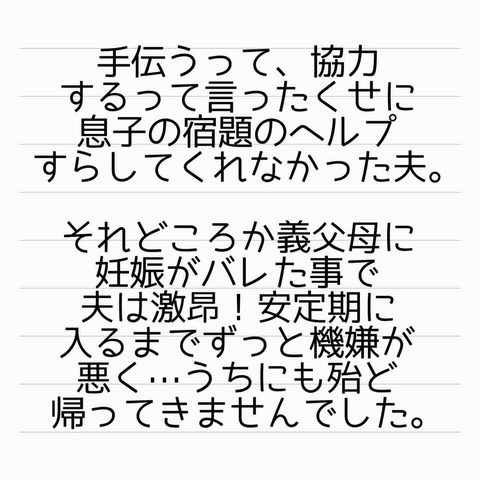 手伝うって、協力
するって言ったくせに
息子の宿題のヘルプ
すらしてくれなかった夫。
それどころか義父母に
妊娠がバレた事で
夫は激昂！安定期に
入るまでずっと機嫌が
悪く…うちにも殆ど
帰ってきませんでした。